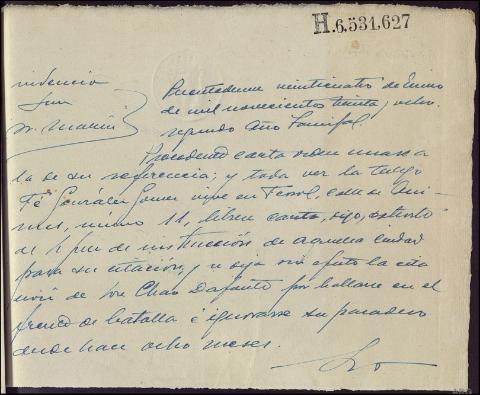 H.6.531.627
videncia
Juez
Sr. Marin
Puentedeume veinticuatro de Enero
de mil novecientos treinta y ocho.
segundo Año Triunfal.
Precedente carta orden unase a
la de su referencia; y toda vez la testigo
Fé González Gomez vive en Ferrol, calle de Ani-
mas, número 11, librese carta, digo, exhorto
al Juez de instrucción de aquella ciudad
para su citación, y se deja sin efecto la cita
ción de José Chao Dafonte por hallarse en el
frente de batalla é ignorarse su paradero
desde hace ocho meses.